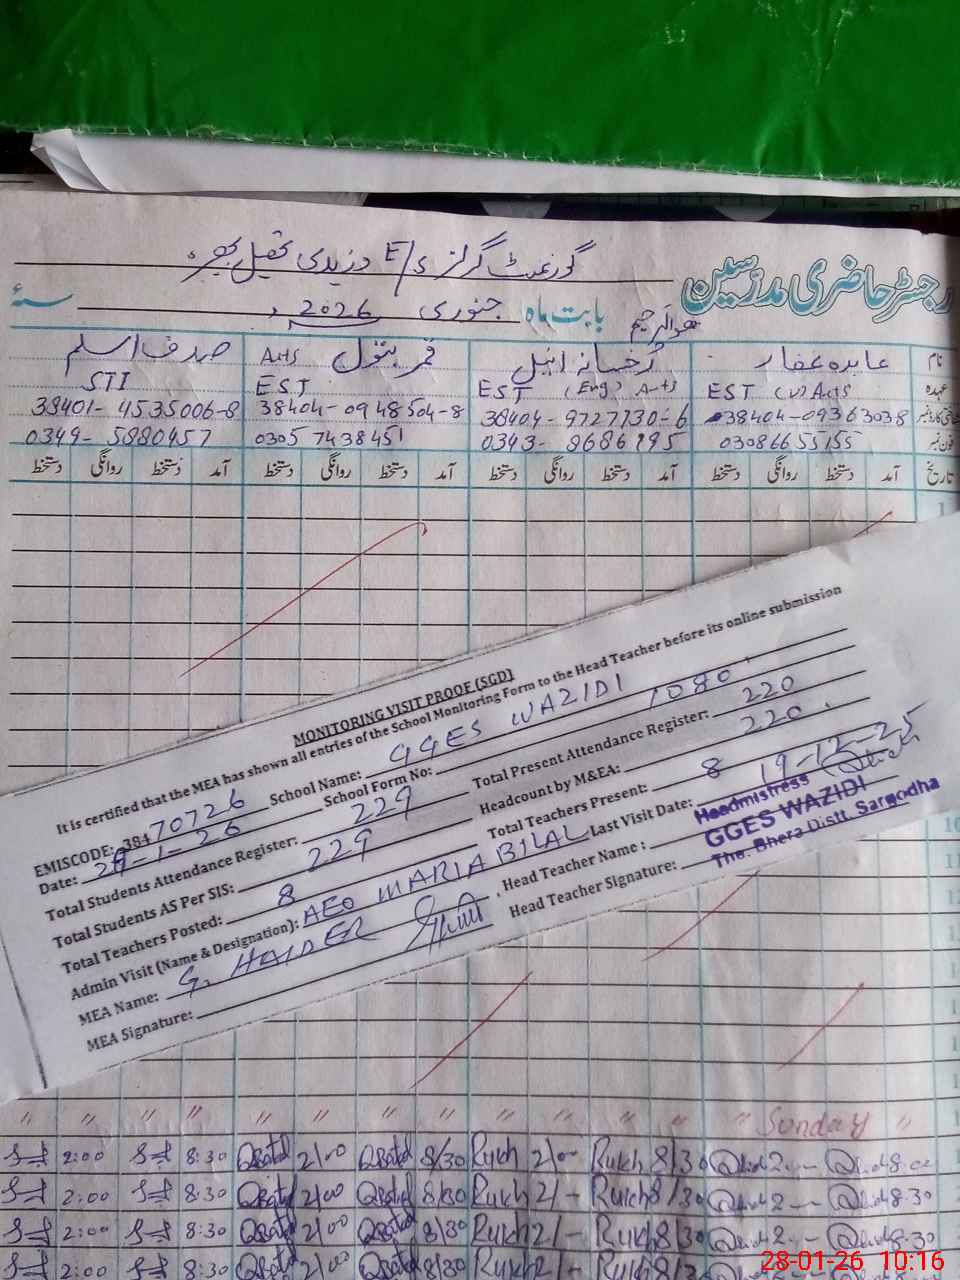 گورنمنٹ گرلز E/S وزیدی تحصیل بھیرہ
رجسٹر حاضری مدرسین
بابت ماہ جنوری 2026 سنہ
ھوالرحیم
نام عابدہ غفار رخسانہ قمر بتول صدف اسلم
عہدہ EST (U) Arts EST (Eng) Arts EST Arts STI
38404-09363038 38404-9727730-6 38404-0948504-8 38401-4535006-8
فون نمبر 03086655155 0343-8686195 03057438451 0349-5880457
تاریخ آمد دستخط روانگی دستخط آمد دستخط روانگی دستخط آمد دستخط روانگی دستخط آمد دستخط روانگی دستخط
MONITORING VISIT PROOF (SGD)
It is certified that the MEA has shown all entries of the School Monitoring Form to the Head Teacher before its online submission
EMISCODE: 38470726 School Name: GGES WAZIDI
Date: 28-1-26 School Form No: 1080
Total Students Attendance Register: 229 Total Present Attendance Register: 220
Total Students AS Per SIS: 229 Headcount by M&EA: 220
Total Teachers Posted: 8 Total Teachers Present: 8
Admin Visit (Name & Designation): AEO MARIA BILAL Last Visit Date: 19-12-25
MEA Name: G. HAIDER Head Teacher Name:
MEA Signature: Head Teacher Signature:
Headmistress
GGES WAZIDI
The. Bhera Distt. Sargodha
Sunday
2:00 8:30 2/00 8/30 Rukh 2/00 Rukh 8/30
2:00 8:30 2/00 8/30 Rukh 2/- Rukh 8/30 8.30
2:00 8:30 2/00 8/30 Rukh 2/- Rukh 8/30 8.30
2:00 8:30 2/00 8/30 Rukh 2/- Rukh 8/30
28-01-26 10:16